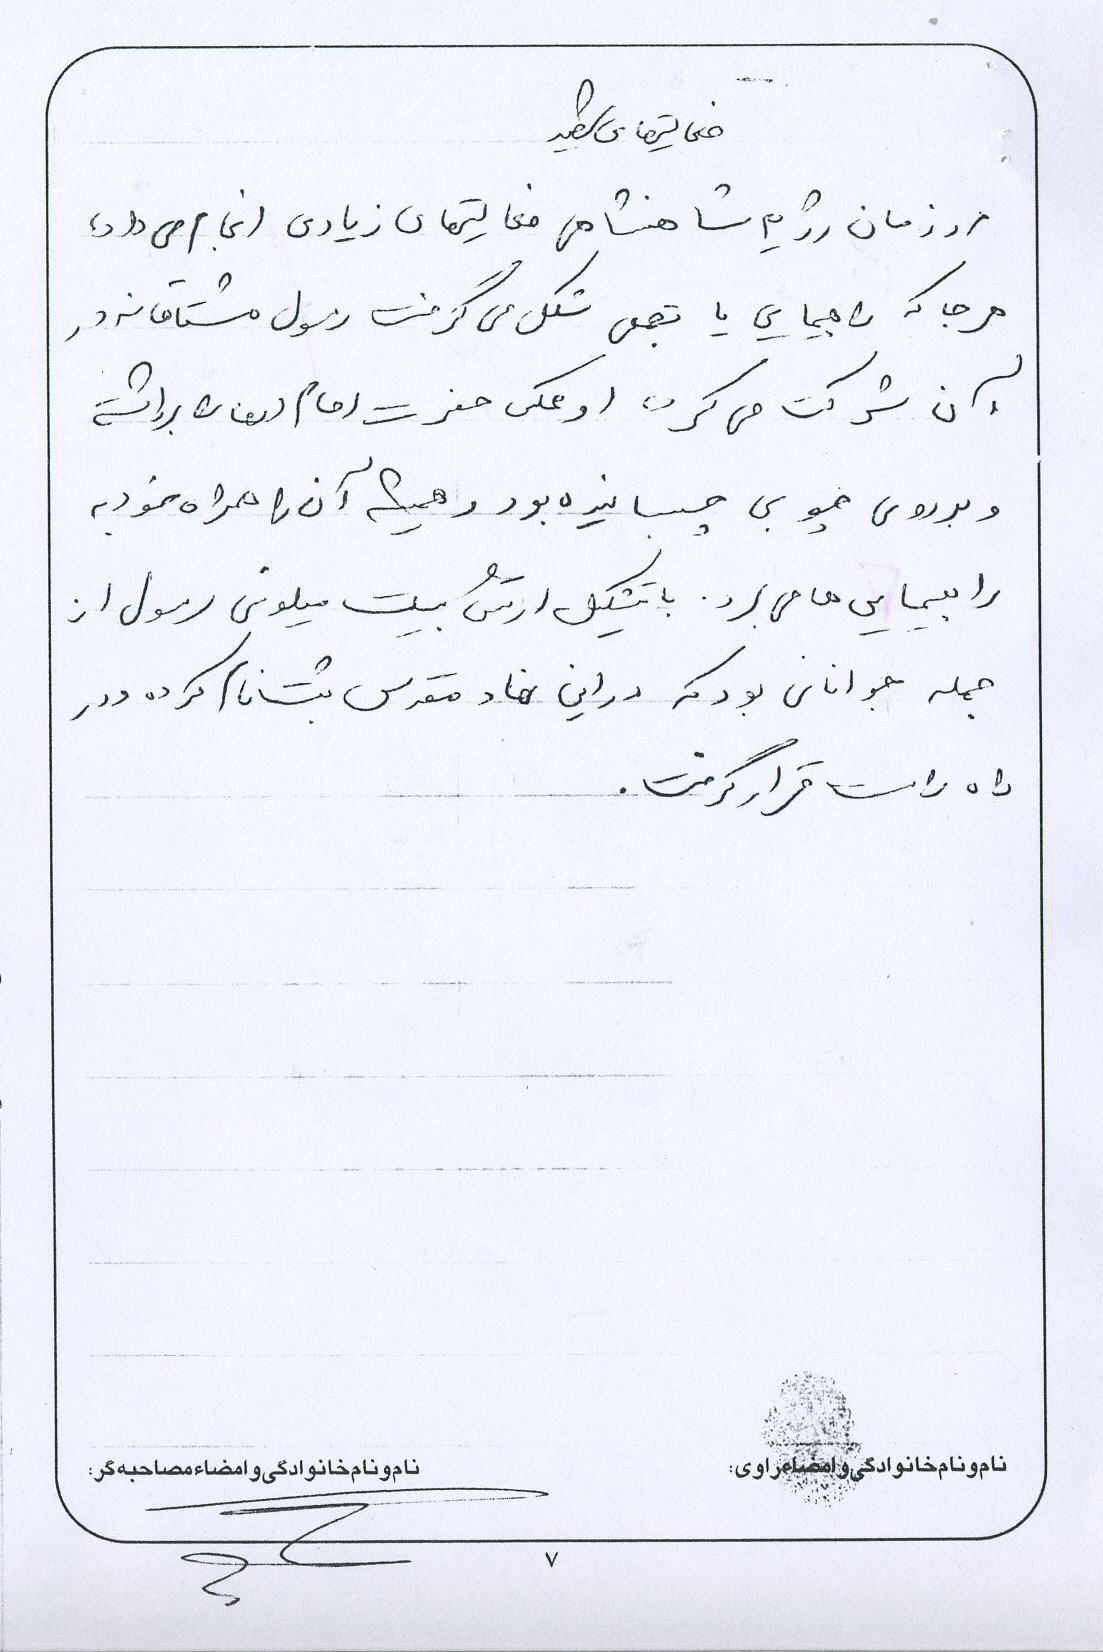 فعالیتهای شهید
در زمان رژیم شاهنشاهی فعالیتهای زیادی انجام می داد،
هر جا که راهپیمایی یا تجمعی شکل می گرفت رسول مشتاقانه در
آن شرکت می کرد، او عکس حضرت امام را برداشته
و بر روی چوبی چسبانیده بود و همیشه آن را همراه خود به
راهپیمایی ها می برد. با تشکیل ارتش بیست میلیونی رسول از
جمله جوانانی بود که در این نهاد مقدس ثبت نام کرده و در
راه راست قرار گرفت.
نام و نام خانوادگی و امضاء راوی:
نام و نام خانوادگی و امضاء مصاحبه گر:
۷